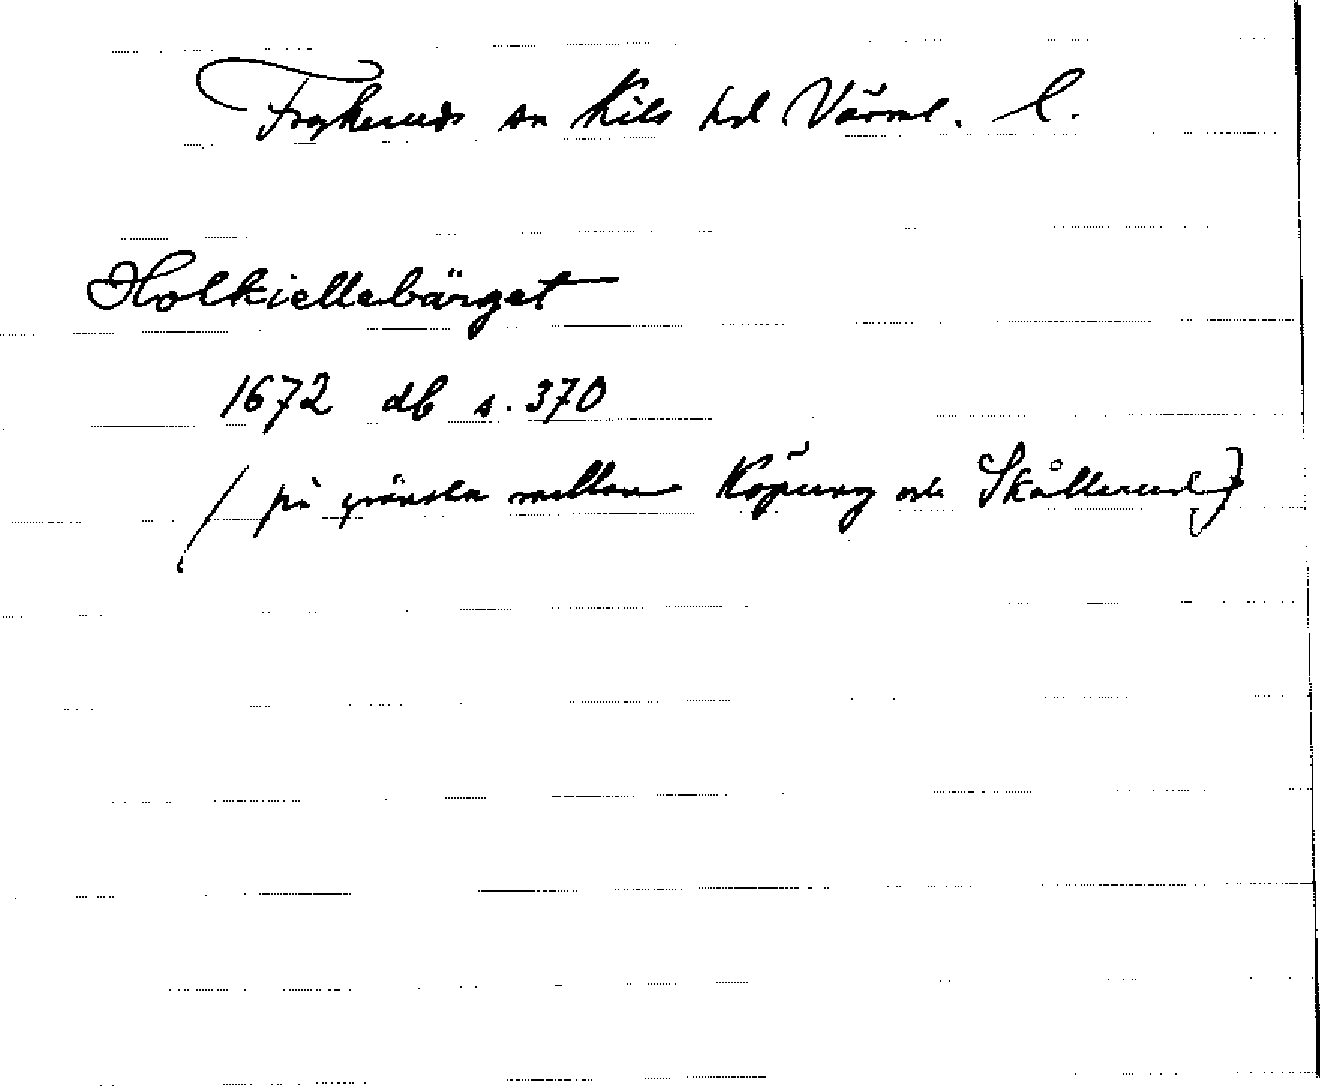 Frykeruds sn Kils hd Värml. l.
Holkiellebärget
1672 db s. 370
(på gränsen mellan Köpung och Skållerud)